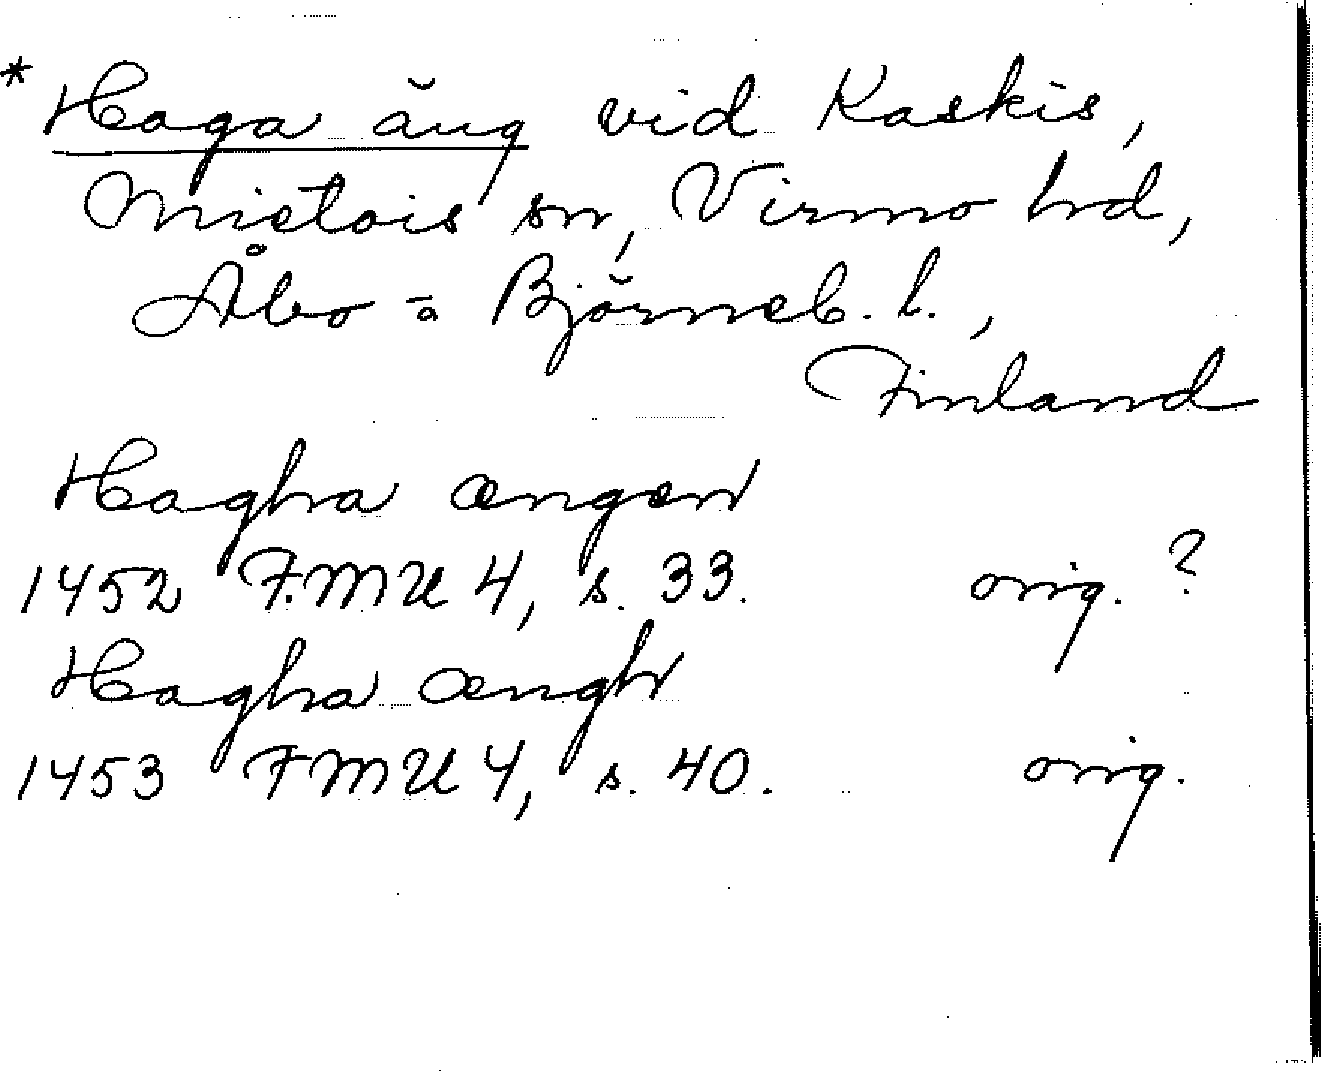 * Haga äng vid Kaskis,
Mietois sn, Virmo hd,
Åbo o Björneb. l.,
Finland
Hagha ængen
1452 F.M U 4, s. 33. orig. ?
Hagha ængh
1453 F M U 4, s. 40. orig.